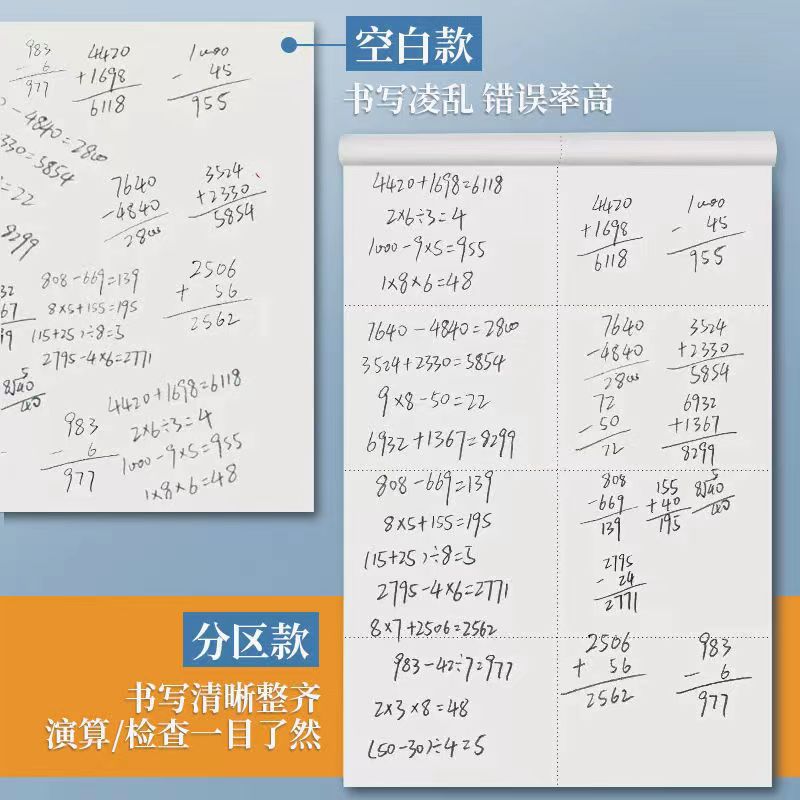 空白款
书写凌乱 错误率高
983
- 6
977
4420
+1698
6118
1000
- 45
955
- 4840=2800
2330=5854
=22
8299
7640
-4840
2800
3524
+2330
5854
808-669=139
8×5+155=195
(15+25)÷8=5
2795-4×6=2771
2506
+ 56
2562
983
- 6
977
4420+1698=6118
2×6÷3=4
1000-9×5=955
1×8×6=48
4420+1698=6118
2×6÷3=4
1000-9×5=955
1×8×6=48
4420
+1698
6118
1000
- 45
955
7640-4840=2800
3524+2330=5854
9×8-50=22
6932+1367=8299
7640
-4840
2800
3524
+2330
5854
72
-50
72
6932
+1367
8299
808-669=139
8×5+155=195
(15+25)÷8=5
2795-4×6=2771
8×7+2506=2562
808
-669
139
155
+40
195
5
8√40
40
2795
- 24
2771
983-42÷7=977
2×3×8=48
(50-30)÷4=5
2506
+ 56
2562
983
- 6
977
分区款
书写清晰整齐
演算/检查一目了然